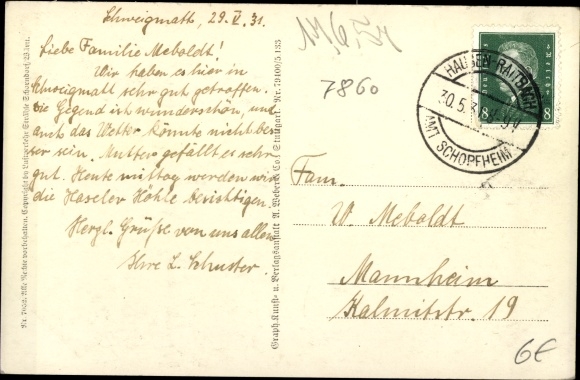 Schweigmatt, 29.V.31.
Liebe Familie Meboldt!
Wir haben es hier in
Schweigmatt sehr gut getroffen.
Die Gegend ist wunderschön, und
auch das Wetter könnte nicht bes-
ser sein. Mutter gefällt es sehr
gut. Heute mittag werden wir
die Haseler Höhle besichtigen.
Herzl. Grüße von uns allen
Ihre L. Schuster
Nr. 7052. Alle Rechte vorbehalten. Copyright by
Graph. Kunst- u. Verlagsanstalt A. Weber & Co., Stuttgart. Nr. 79100/5.135
7860
HAUSEN-RAITBACH
30.5.31
AMT SCHOPFHEIM
8
8
Fam.
W. Meboldt
Mannheim
Kalmitstr. 19
6€